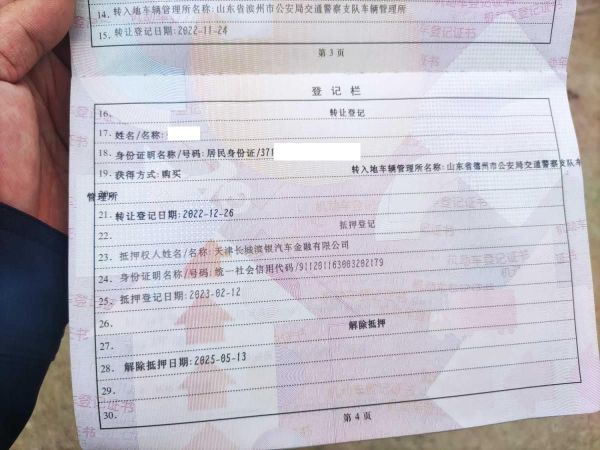 14. 转入地车辆管理所名称:山东省滨州市公安局交通警察支队车辆管理所
15. 转让登记日期:2022-11-24
第3页
登记栏
16. 转让登记
17. 姓名/名称:
18. 身份证明名称/号码:居民身份证/371
19. 获得方式:购买 转入地车辆管理所名称:山东省滨州市公安局交通警察支队车
20. 管理所
21. 转让登记日期:2022-12-26
22. 抵押登记
23. 抵押权人姓名/名称:天津长城滨银汽车金融有限公司
24. 身份证明名称/号码:统一社会信用代码/911201163003282179
25. 抵押登记日期:2023-02-12
26.
27. 解除抵押
28. 解除抵押日期:2025-05-13
29.
30.
第4页